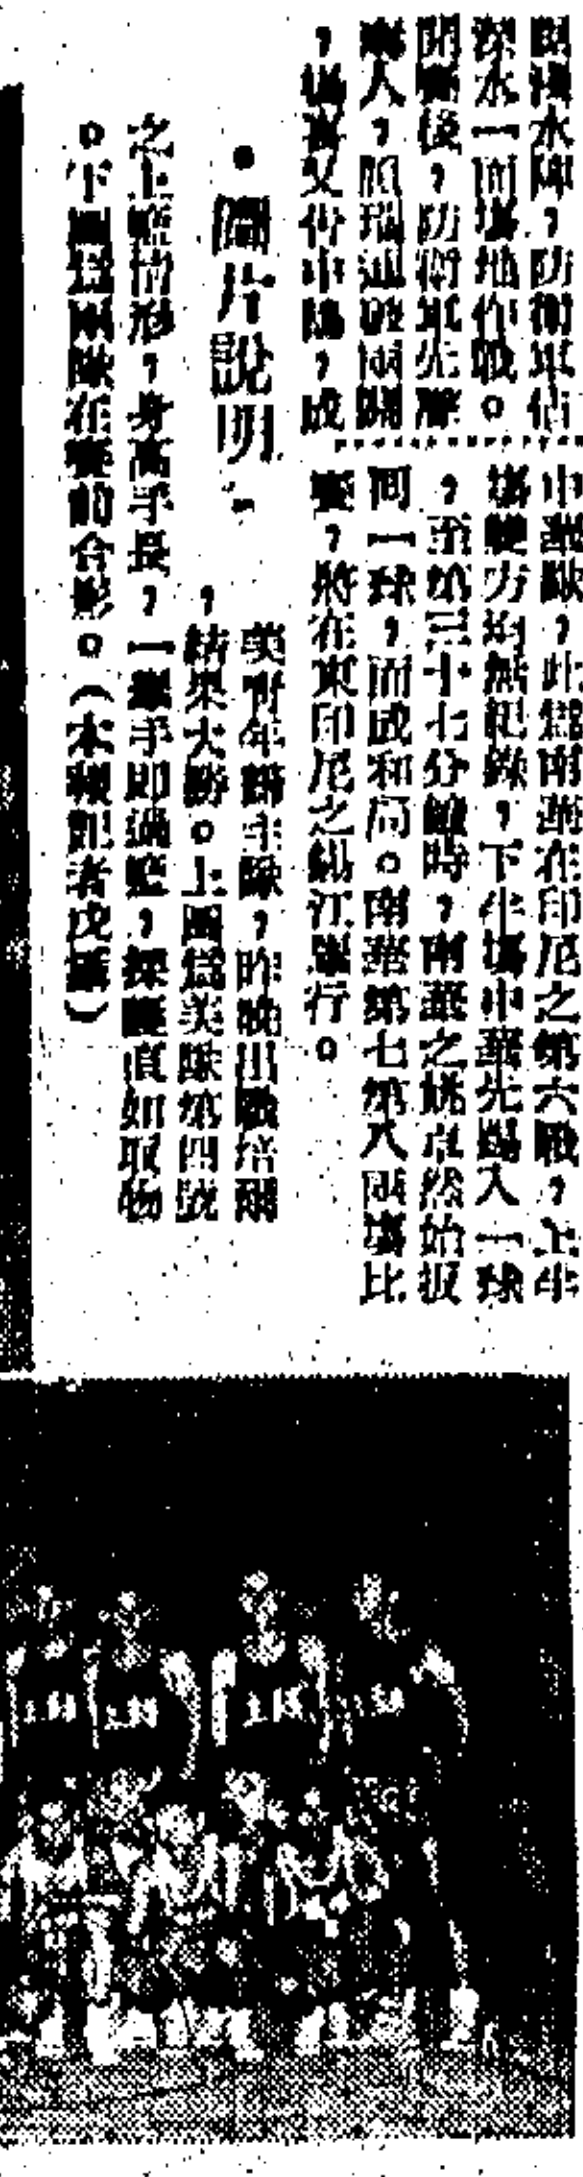 水陣,防衛軍佔
深水一面場地作戰。
開賽後,防衛軍先聲
人,
,又告中鵠,成
中華歐,此爲南華在印尼之第六戰,上半
場雙方均無紀錄,下半場中華先踢入一球
,至第三十七分鐘時,南華之姚卓然始扳
同一球,而成和局。南華第七第八兩場比
賽,將在東印尼之錫江舉行。
•圖片說明:
美青年歸主隊,昨晚出戰培爾
,結果大勝。上圖爲美隊第四號
之上籃情形,身高手長,一舉手即過籃,探囊直如取物
。下圖爲兩隊在賽前合影。(本報記者攝)